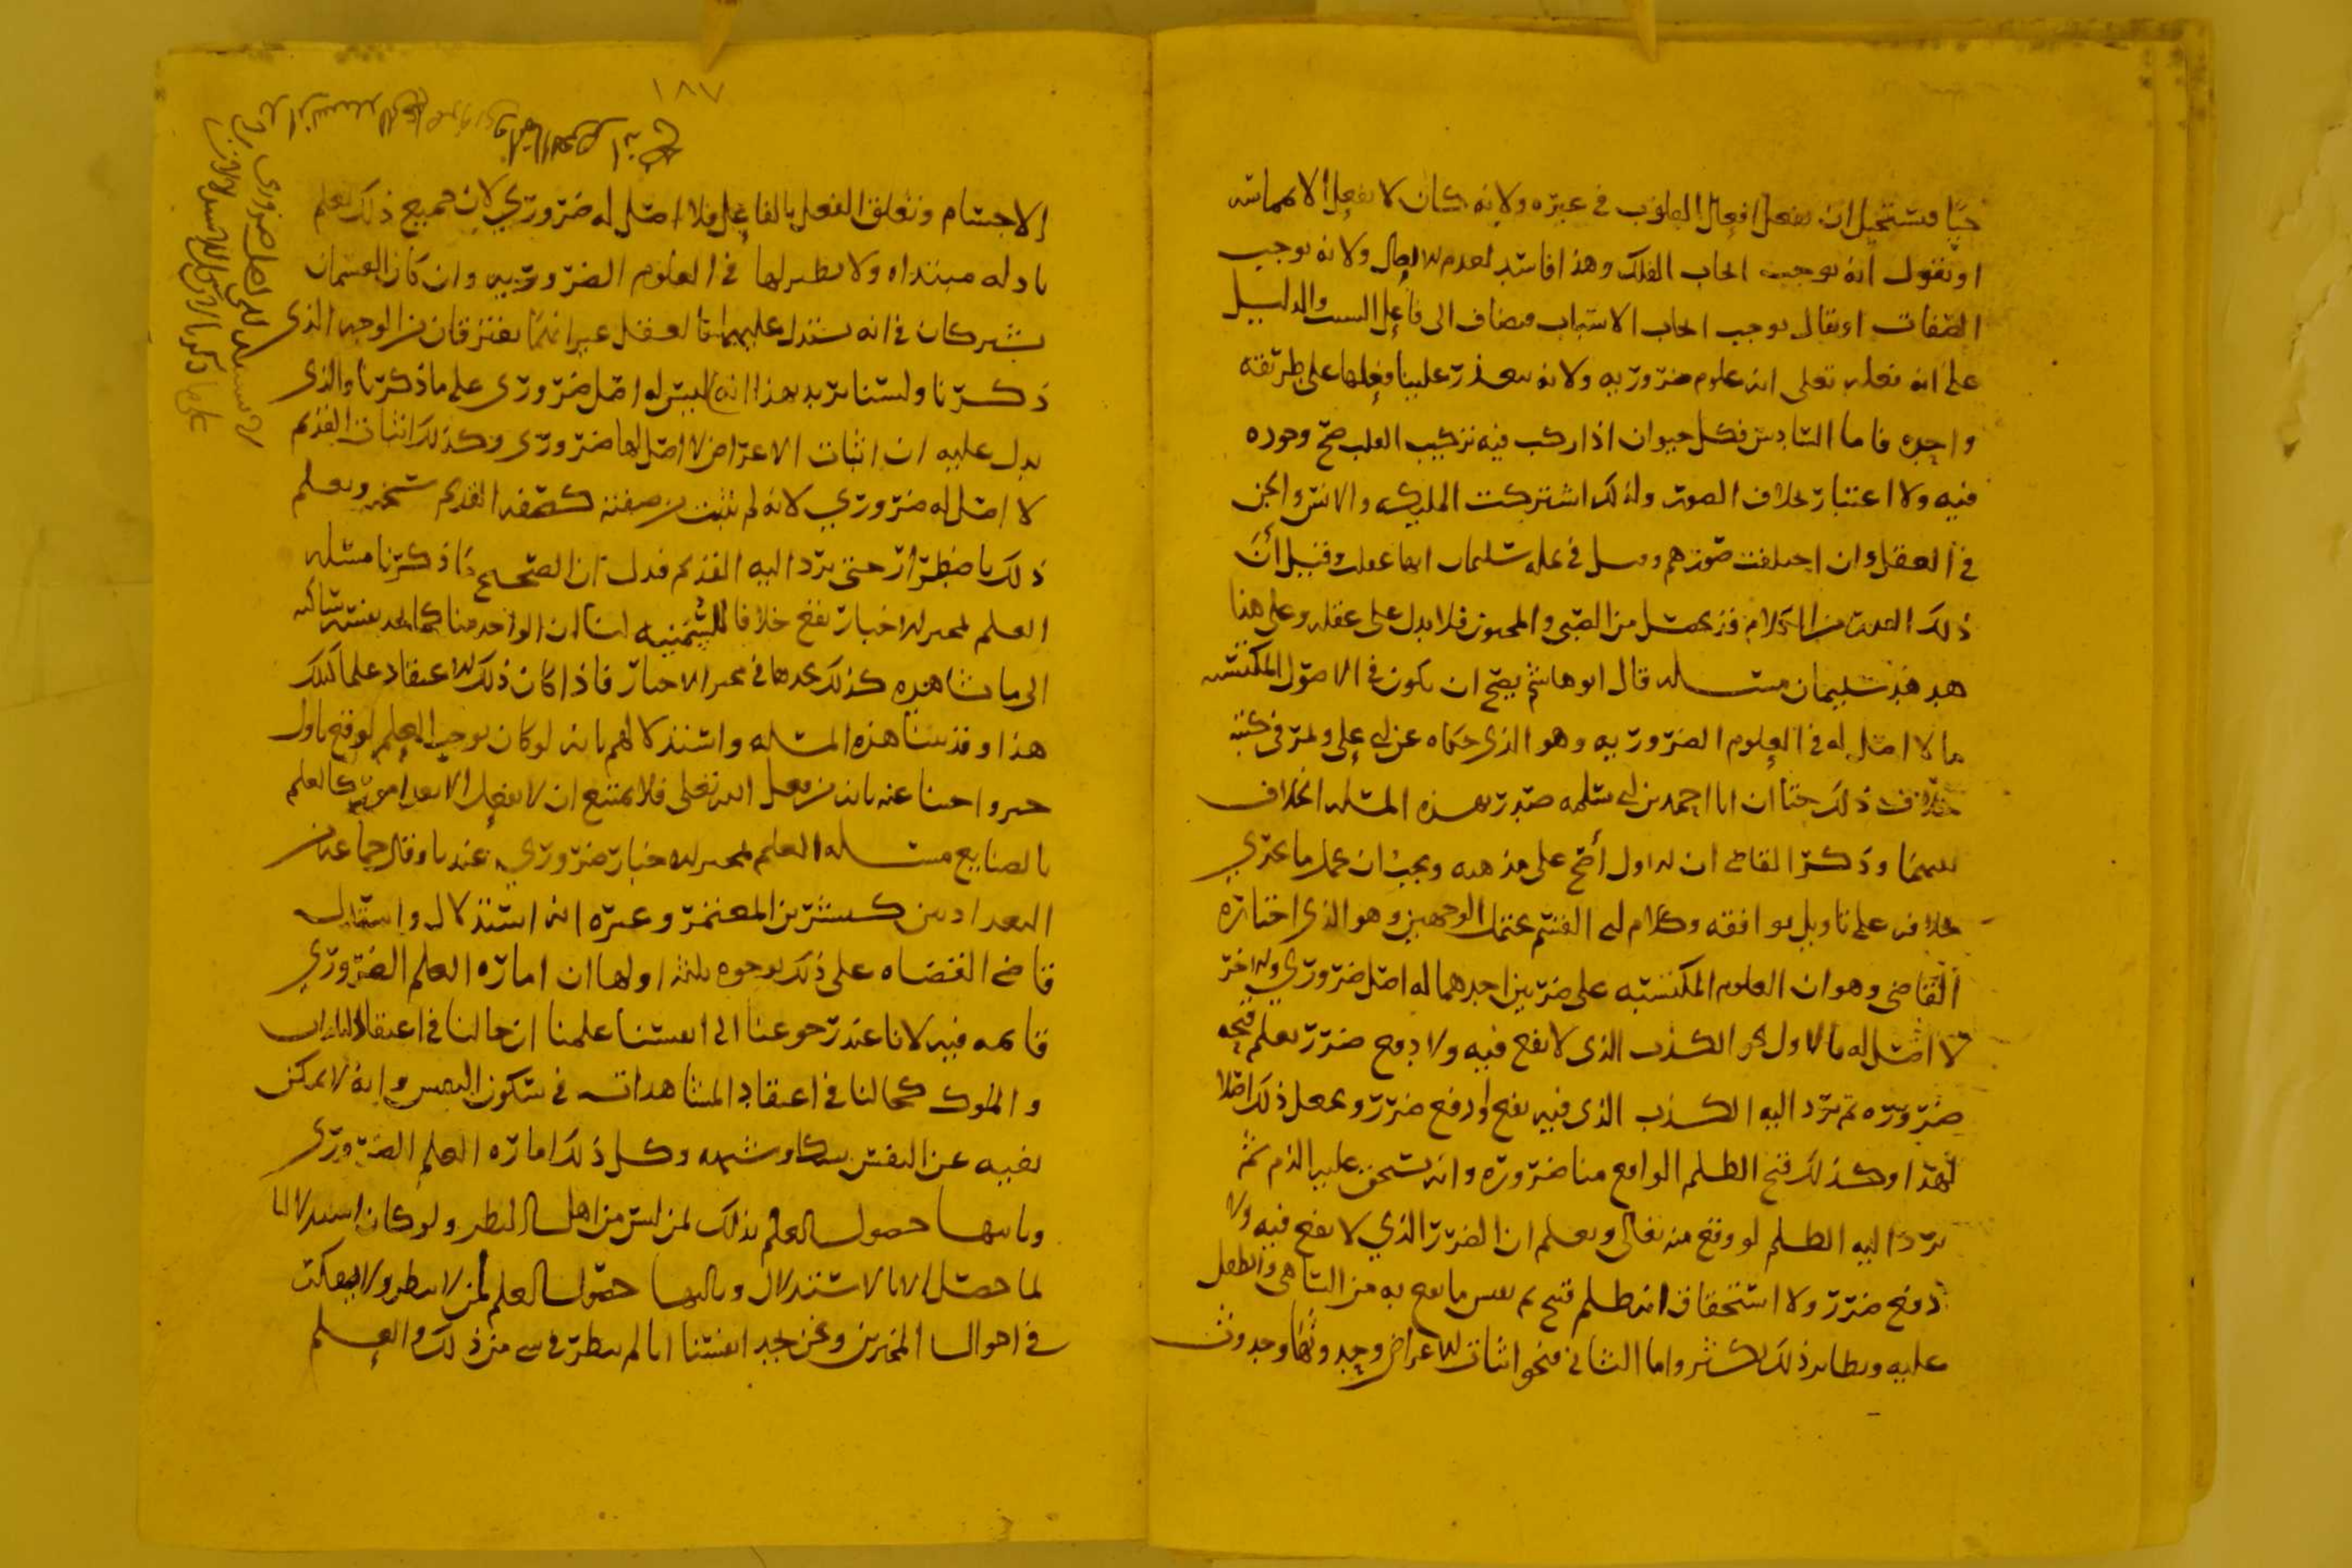 حيا فيستحيل ان يفعل افعال القلوب في غيره ولانه كان لا يفعل الا بمماسه
او يقول انه بوجب الفلك وهذا فاسد لعدم ولانه بوجب
الصفات او يقال بوجب الاسباب فيضاف الى فاعل السبب والدليل
على انه فعله تعلى انه علوم ضروريه ولانه يتعذر علينا فعلها على طريقه
واحده فاما السادس فكل حيوان اذا ركب فيه تركيب القلب صح وجوده
فيه ولا اعتبار بخلاف الصور ولذلك اشتركت المليكه والانس والجن
في العقل وان اختلفت صورهم وقيل في نمله سليمان انها عقلت وقيل ان
ذلك القدر من الكلام قد يحصل من الصبي والمجنون فلا يدل على عقله وعلى هذا
هدهد سليمان مسله قال ابو هاشم يصح ان يكون في الاصول المكتسبه
ما لا اصل له في العلوم الضروريه وهو الذي حكاه عن ابي علي ومر في كتبه
خلاف ذلك حتى ان ابا احمد بن ابي سلمه صدر بهذه المسله الخلاف
بينهما وذكر القاضي ان الاول اصح على مذهبه ويجب ان يحمل ما يجري
خلافه على تاويل يوافقه وكلام ابي القسم يحتمل الوجهين وهو الذي اختاره
القاضي وهو ان العلوم المكتسبه على ضربين احدهما له اصل ضروري والاخر
لا اصل له فالاول نحو الكذب الذي لا نفع فيه ولا دفع ضرر يعلم قبحه
ضروره ثم يرد اليه الكذب الذي فيه نفع او دفع ضرر ويجعل ذلك اصلا
لهذا وكذلك قبح الظلم الواقع منا ضروره وانه يستحق عليه الذم ثم
يرد اليه الظلم لو وقع منه تعالى ويعلم ان الضرر الذي لا نفع فيه ولا
دفع ضرر ولا استحقاق انه ظلم قبيح ثم يقيس ما يقع به من الساهي والطفل
عليه ونظاير ذلك يكثر واما الثاني فنحو اثبات الاعراض وحدوثها وحدوث
١٨٧
الاجسام وتعلق الفعل بالفاعل فلا اصل له ضروري لان جميع ذلك يعلم
بادله مبتداه ولا نظير لها في العلوم الضروريه وان كان القسمان
يشتركان في انه يستدل عليهما بالعقل غير انهما يفترقان من الوجه الذي
ذكرنا ولسنا نريد بهذا انه ليس له اصل ضروري على ما ذكرنا والذي
يدل عليه ان اثبات الاعراض لا اصل لها ضروري وكذلك اثبات القديم
لا اصل له ضروري لانه لم تثبت من صفته كصفه القديم ويعلم
ذلك باضطرار حتى يرد اليه القديم فدل ان الصحيح ما ذكرنا مسله
العلم بمخبر الاخبار يقع خلافا للسمنيه لنا ان الواحد منا كما يجد نفسه ساكنه
الى ما شاهده كذلك يجدها في مخبر الاخبار فاذا كان ذلك الاعتقاد علما كذلك
هذا وقد بينا هذه المسله واستدلالهم بانه لو كان يوجب العلم لوقع باول
خبر واجبنا عنه بانه من فعل الله تعلى فلا يمتنع ان لا يفعل الا بعد امور كالعلم
بالصنايع مسله العلم بمخبر الاخبار ضروري عندنا وقال جماعه من
البغداديين كبشر بن المعتمر وغيره انه استدلال واستدل
قاضي القضاه على ذلك بوجوه ثلثه اولها ان اماره العلم الضروري
قايمه فيه لانا عند رجوعنا الى انفسنا علمنا ان حالنا في اعتقاد البلدان
والملوك كحالنا في اعتقاد المشاهدات في سكون النفس وانه لا يمكن
نفيه عن النفس بشك او شبهه وكل ذلك اماره العلم الضروري
وثانيها حصول العلم بذلك لمن ليس من اهل النظر ولو كان استدلاليا
لما حصل الا بالاستدلال وثالثها حصول العلم لمن لا ينظر ولا يتفكر
في احوال المخبرين ونحن نجد انفسنا انا لم ننظر في شي من ذلك والعلم